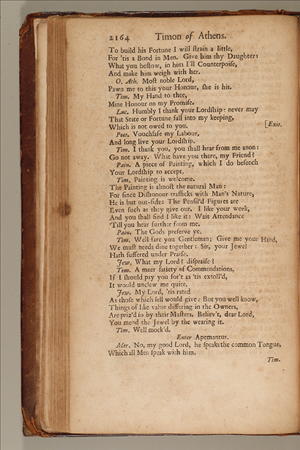 2164 Timon of Athens.
To build his Fortune I will ſtrain a little,
For 'tis a Bond in Men. Give him thy Daughter:
What you beſtow, in him I'll Counterpoiſe,
And make him weigh with her.
O. Ath. Moſt noble Lord,
Pawn me to this your Honour, ſhe is his.
Tim. My Hand to thee,
Mine Honour on my Promiſe.
Luc. Humbly I thank your Lordſhip: never may
That State or Fortune fall into my keeping,
Which is not owed to you. [Exit.
Poet. Vouchſafe my Labour,
And long live your Lordſhip.
Tim. I thank you, you ſhall hear from me anon:
Go not away. What have you there, my Friend?
Pain. A piece of Painting, which I do beſeech
Your Lordſhip to accept.
Tim. Painting is welcome.
The Painting is almoſt the natural Man:
For ſince Diſhonour trafficks with Man's Nature,
He is but out-ſide: The Penſil'd Figures are
Even ſuch as they give out. I like your work,
And you ſhall find I like it: Wait Attendance
'Till you hear further from me.
Pain. The Gods preſerve ye.
Tim. Well fare you Gentleman; Give me your Hand,
We muſt needs dine together: Sir, your Jewel
Hath ſuffered under Praiſe.
Jew. What my Lord? diſpraiſe?
Tim. A meer ſatiety of Commendations,
If I ſhould pay you for't as 'tis extoll'd,
It would unclew me quite.
Jew. My Lord, 'tis rated
As thoſe which ſell would give: But you well know,
Things of like value differing in the Owners,
Are priz'd ſo by their Maſters. Believ't, dear Lord,
You mend the Jewel by the wearing it.
Tim. Well mock'd.
Enter Apemantus.
Mer. No, my good Lord, he ſpeaks the common Tongue,
Which all Men ſpeak with him.
Tim.